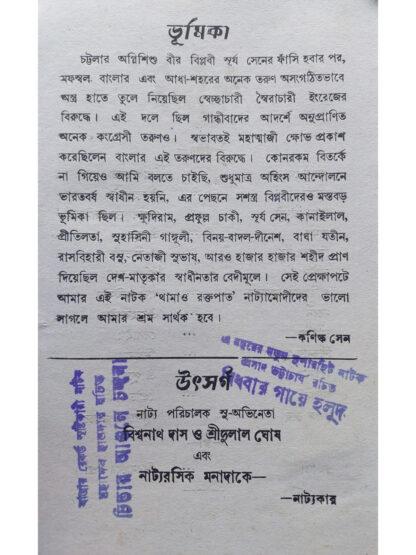 ভূমিকা
চট্টলার অগ্নিশিশু বীর বিপ্লবী সূর্য সেনের ফাঁসি হবার পর,
মফস্বল বাংলার এবং আধা-শহরের অনেক তরুণ অসংগঠিতভাবে
অস্ত্র হাতে তুলে নিয়েছিল স্বেচ্ছাচারী স্বৈরাচারী ইংরেজের
বিরুদ্ধে। এই দলে ছিল গান্ধীবাদের আদর্শে অনুপ্রাণিত
অনেক কংগ্রেসী তরুণও। স্বভাবতই মহাত্মাজী ক্ষোভ প্রকাশ
করেছিলেন বাংলার এই তরুণদের বিরুদ্ধে। কোনরকম বিতর্কে
না গিয়েও আমি বলতে চাইছি, শুধুমাত্র অহিংস আন্দোলনে
ভারতবর্ষ স্বাধীন হয়নি, এর পেছনে সশস্ত্র বিপ্লবীদেরও মস্তবড়
ভূমিকা ছিল। ক্ষুদিরাম, প্রফুল্ল চাকী, সূর্য সেন, কানাইলাল,
প্রীতিলতা, সুহাসিনী গাঙ্গুলী, বিনয়-বাদল-দীনেশ, বাঘা যতীন,
রাসবিহারী বসু, নেতাজী সুভাষ, আরও হাজার হাজার শহীদ প্রাণ
দিয়েছিল দেশ-মাতৃকার স্বাধীনতার বেদীমূলে। সেই প্রেক্ষাপটে
আমার এই নাটক ‘থামাও রক্তপাত’ নাট্যামোদীদের ভালো
লাগলে আমার শ্রম সার্থক হবে।
—কণিষ্ক সেন
এ বছরের নতুন সুপারহিট নাটক
প্রসাদ ভট্টাচার্য রচিত
বিধবার গায়ে হলুদ
উৎসর্গ
নাট্য পরিচালক সু-অভিনেতা
বিশ্বনাথ দাস ও শ্রীদুলাল ঘোষ
এবং
নাট্যরসিক মনাদাকে—
—নাট্যকার
যাত্রার রেকর্ড সৃষ্টিকারী নাটক
মহাদেব হালদার রচিত
চিতার আগুনে